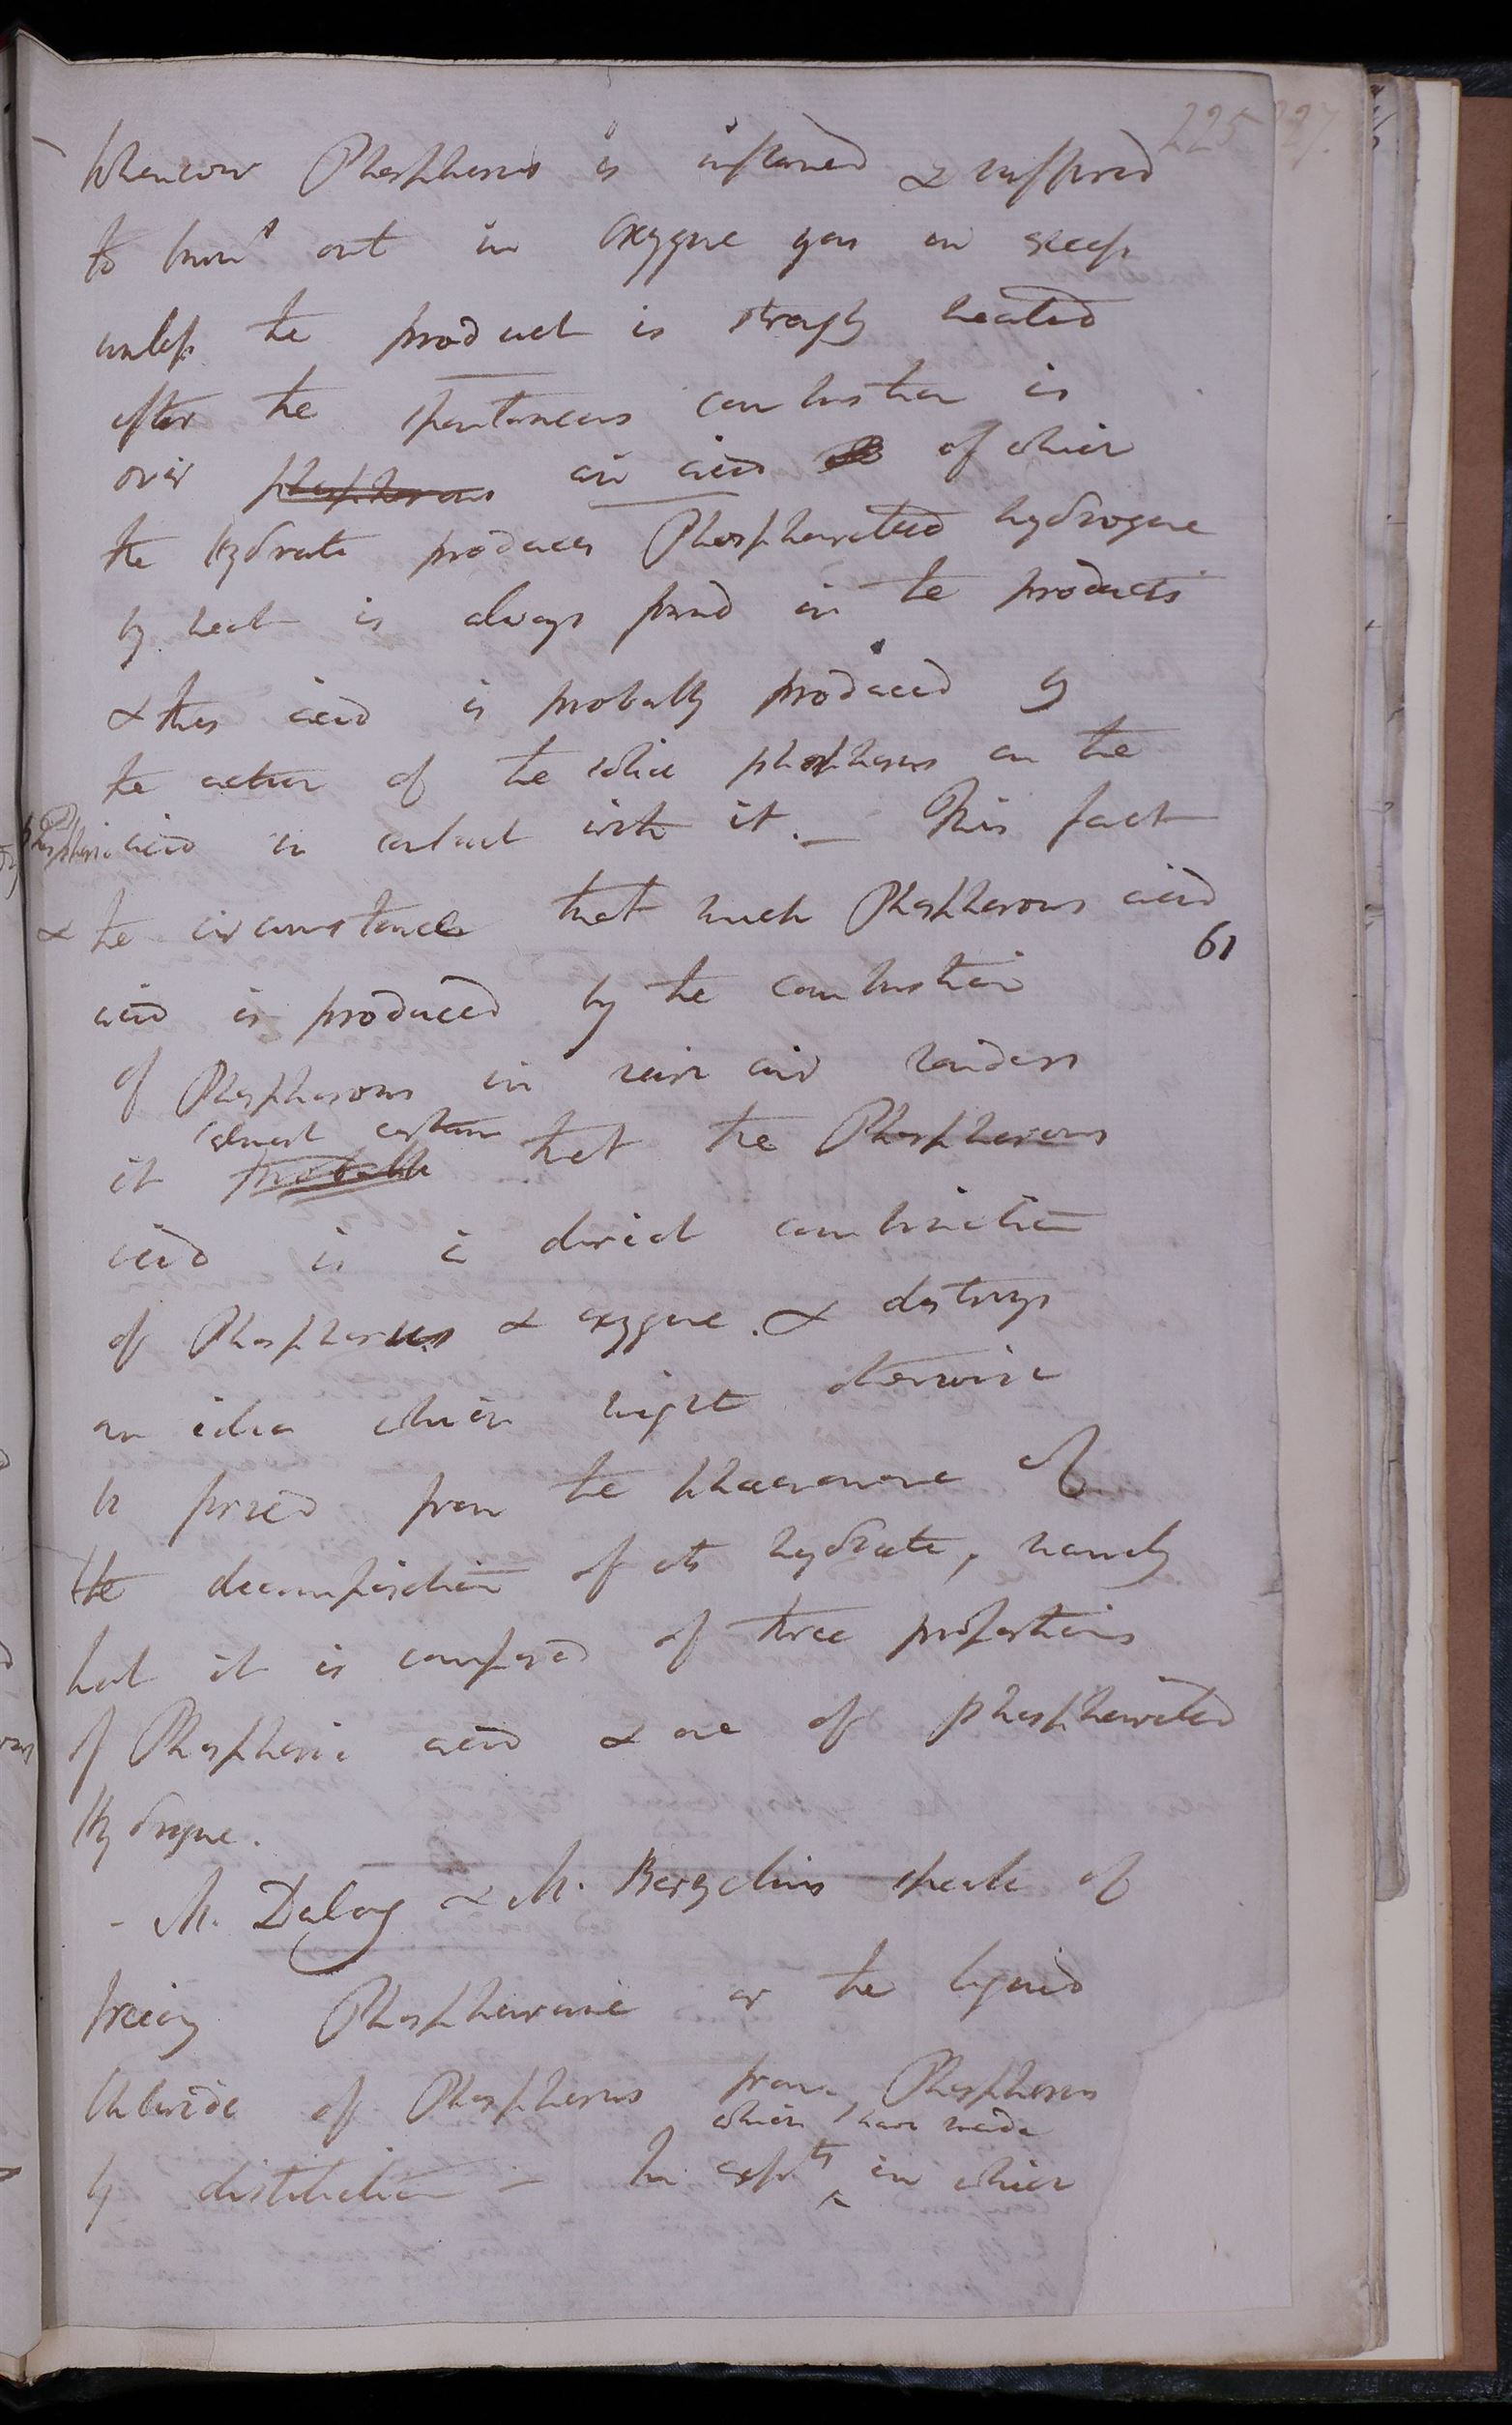 225 227.
Whenever Phosphorus is inflamed & suffered
to burn out in oxygene gas in excess
unless the product is strongly heated
after the spontaneous combustion is
over phosphorous an acid of which
the Hydrate produces Phosphuretted hydrogene
by heat is always found in the products
& this acid is probably produced by
the action of the phosphorus on the
Phosphoric acid in contact with it. – This fact
& the circumstance that much Phosphorous acid
61
acid is produced by the combustion
of Phosphorous in rare air renders
almost certain
it probable that the Phosphorous
acid is a direct combination
of Phosphorus & oxygene. & destroys
an idea which might otherwise
be formed from the phaenomena of
the decomposition of its hydrate, namely
that it is composed of three proportions
of Phosphoric acid & one of phosphuretted
Hydrogene.
– M. Dulong & M. Berzelius speak of
freeing Phosphorane or the liquid
Chloride of Phosphorus from Phosphorus
which I have made
by distillation – In expts in which